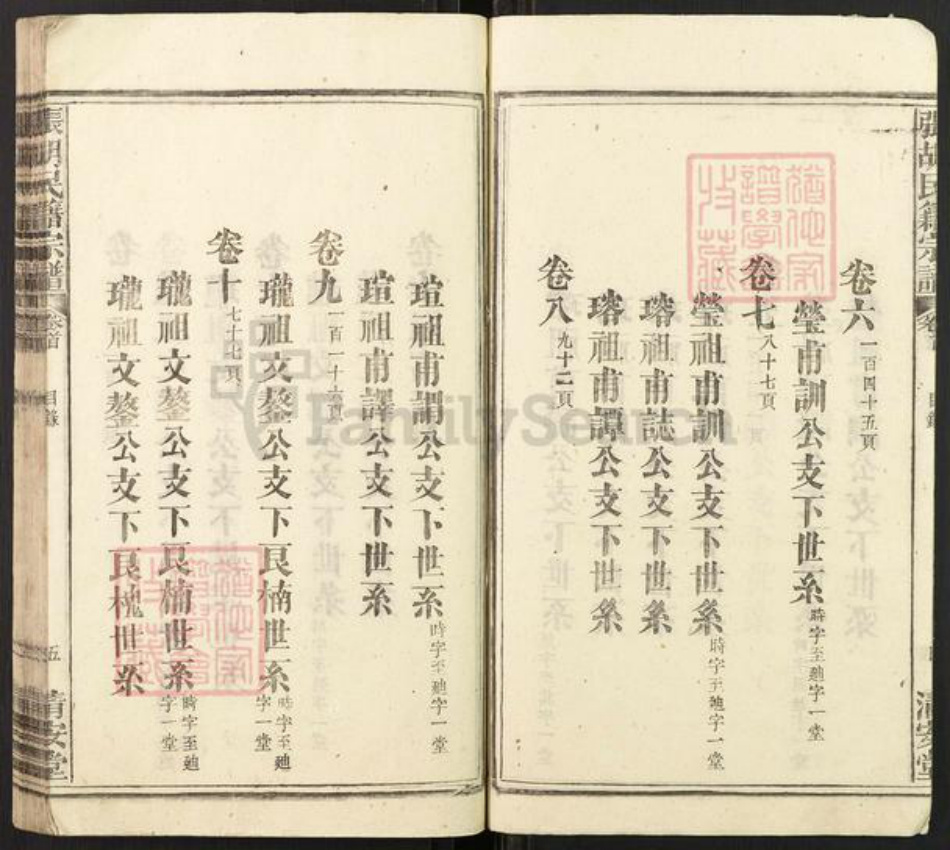 張胡氏籍宗譜
卷首
目錄
清安堂
卷六 一百四十五頁
瑩甫訓公支下世系 時字至廸字一堂
卷七 八十七頁
瑩祖甫訓公支下世系 時字至廸字一堂
璿祖甫誌公支下世系
璿祖甫譚公支下世系
卷八 九十二頁
瑄祖甫調公支下世系 時字至廸字一堂
瑄祖甫譯公支下世系
卷九 一百一十六頁
瓏祖文鏊公支下良楠世系 時字至廸字一堂
卷十 七十七頁
瓏祖文鏊公支下良楠世系 時字至廸字一堂
瓏祖文鏊公支下良槐世系
張胡氏籍宗譜
卷首
目錄
五
清安堂
猶他家譜學會收藏
猶他家譜學會收藏
FamilySearch